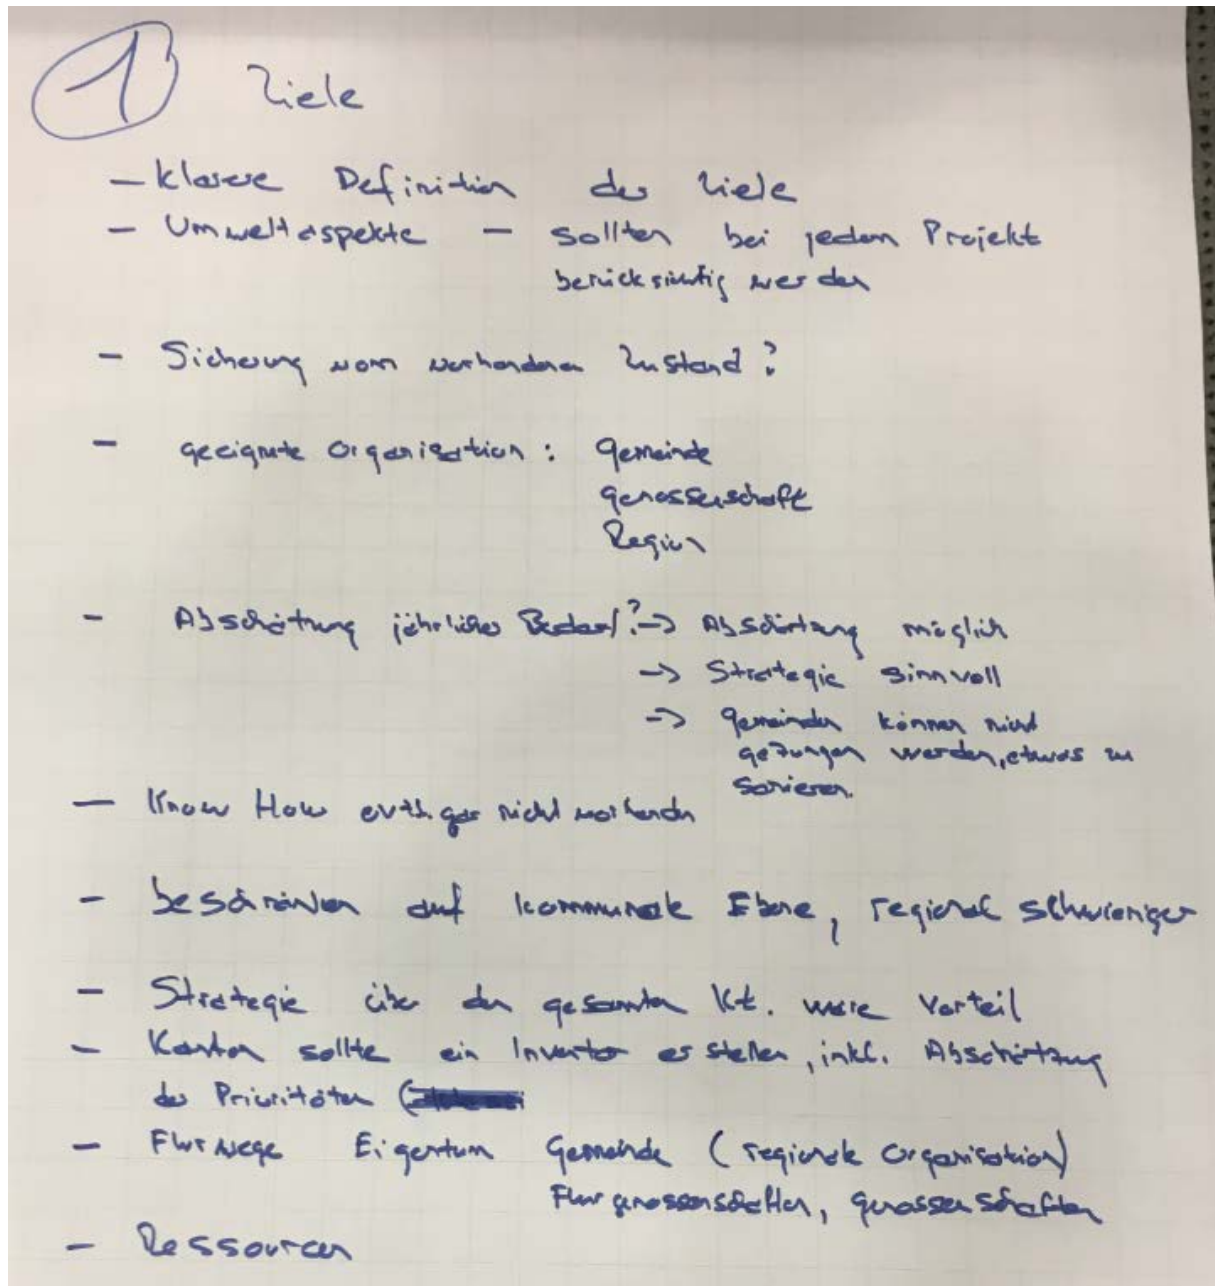 1 Ziele
- klarere Definition der Ziele
- Umweltaspekte - sollten bei jedem Projekt
berücksichtig werden
- Sicherung vom vorhandenen Zustand?
- geeignete Organisation: Gemeinde
Genossenschaft
Region
- Abschätzung jährlicher Bedarf? -> Abschätzung möglich
-> Strategie sinnvoll
-> Gemeinden können nicht
gezwungen werden, etwas zu
sanieren.
- Know How evtl. gar nicht vorhanden
- beschränken auf kommunale Ebene, regional schwieriger
- Strategie über den gesamten Kt. wäre Vorteil
- Kanton sollte ein Inventar erstellen, inkl. Abschätzung
der Prioritäten (
- Flurwege Eigentum Gemeinde (regionale Organisation)
Flurgenossenschaften, Genossenschaften
- Ressourcen